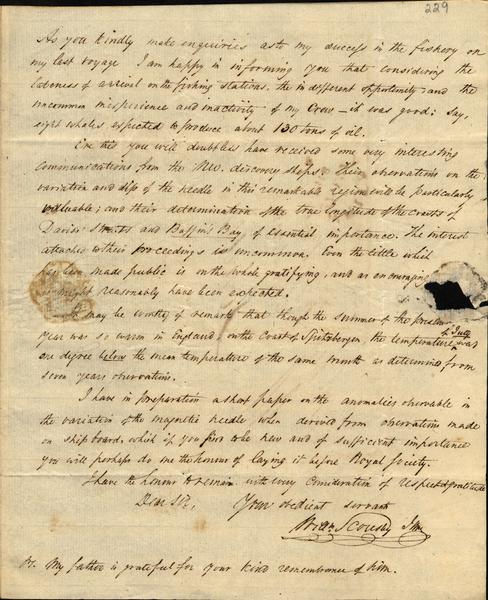 229
As you kindly make enquiries as to my success in the fishery on
my last voyage I am happy in informing you that considering the
lateness of arrival on the fishing stations, the indifferent opportunity, and the
uncommon inexperience and inactivity of my Crew – it was good: say,
eight whales expected to produce about 130 tons of oil.
Ere this you will doubtless have received some very interesting
communications from the NW. discovery ships. Their observations on the
variation and dip of the needle in this remarkable region will be particularly
valuable; and their determination of the true longitude of the coasts of
Davis' Straits and Baffin's Bay of essential importance. The interest
attached to their proceedings is uncommon. Even the little which
has been made public is on the whole gratifying, and as encouraging
as might reasonably have been expected.
It may be worthy of remark that though the summer of the present
year was so warm in England, on the Coast of Spitzbergen, the temperature of July was
one degree below the mean temperature of the same month as determined from
seven years observations.
I have in preparation a short paper on the anomalies observable in
the variation of the magnetic needle when derived from observations made
on ship board, which if you find to be new and of sufficient importance
you will perhaps do me the honour of laying it before Royal Society.
I have the honour to remain with every consideration of respect & gratitude
Dear Sir, Your obedient servant
Wm Scoresby Jun
Ps. My father is grateful for your kind remembrance of him.